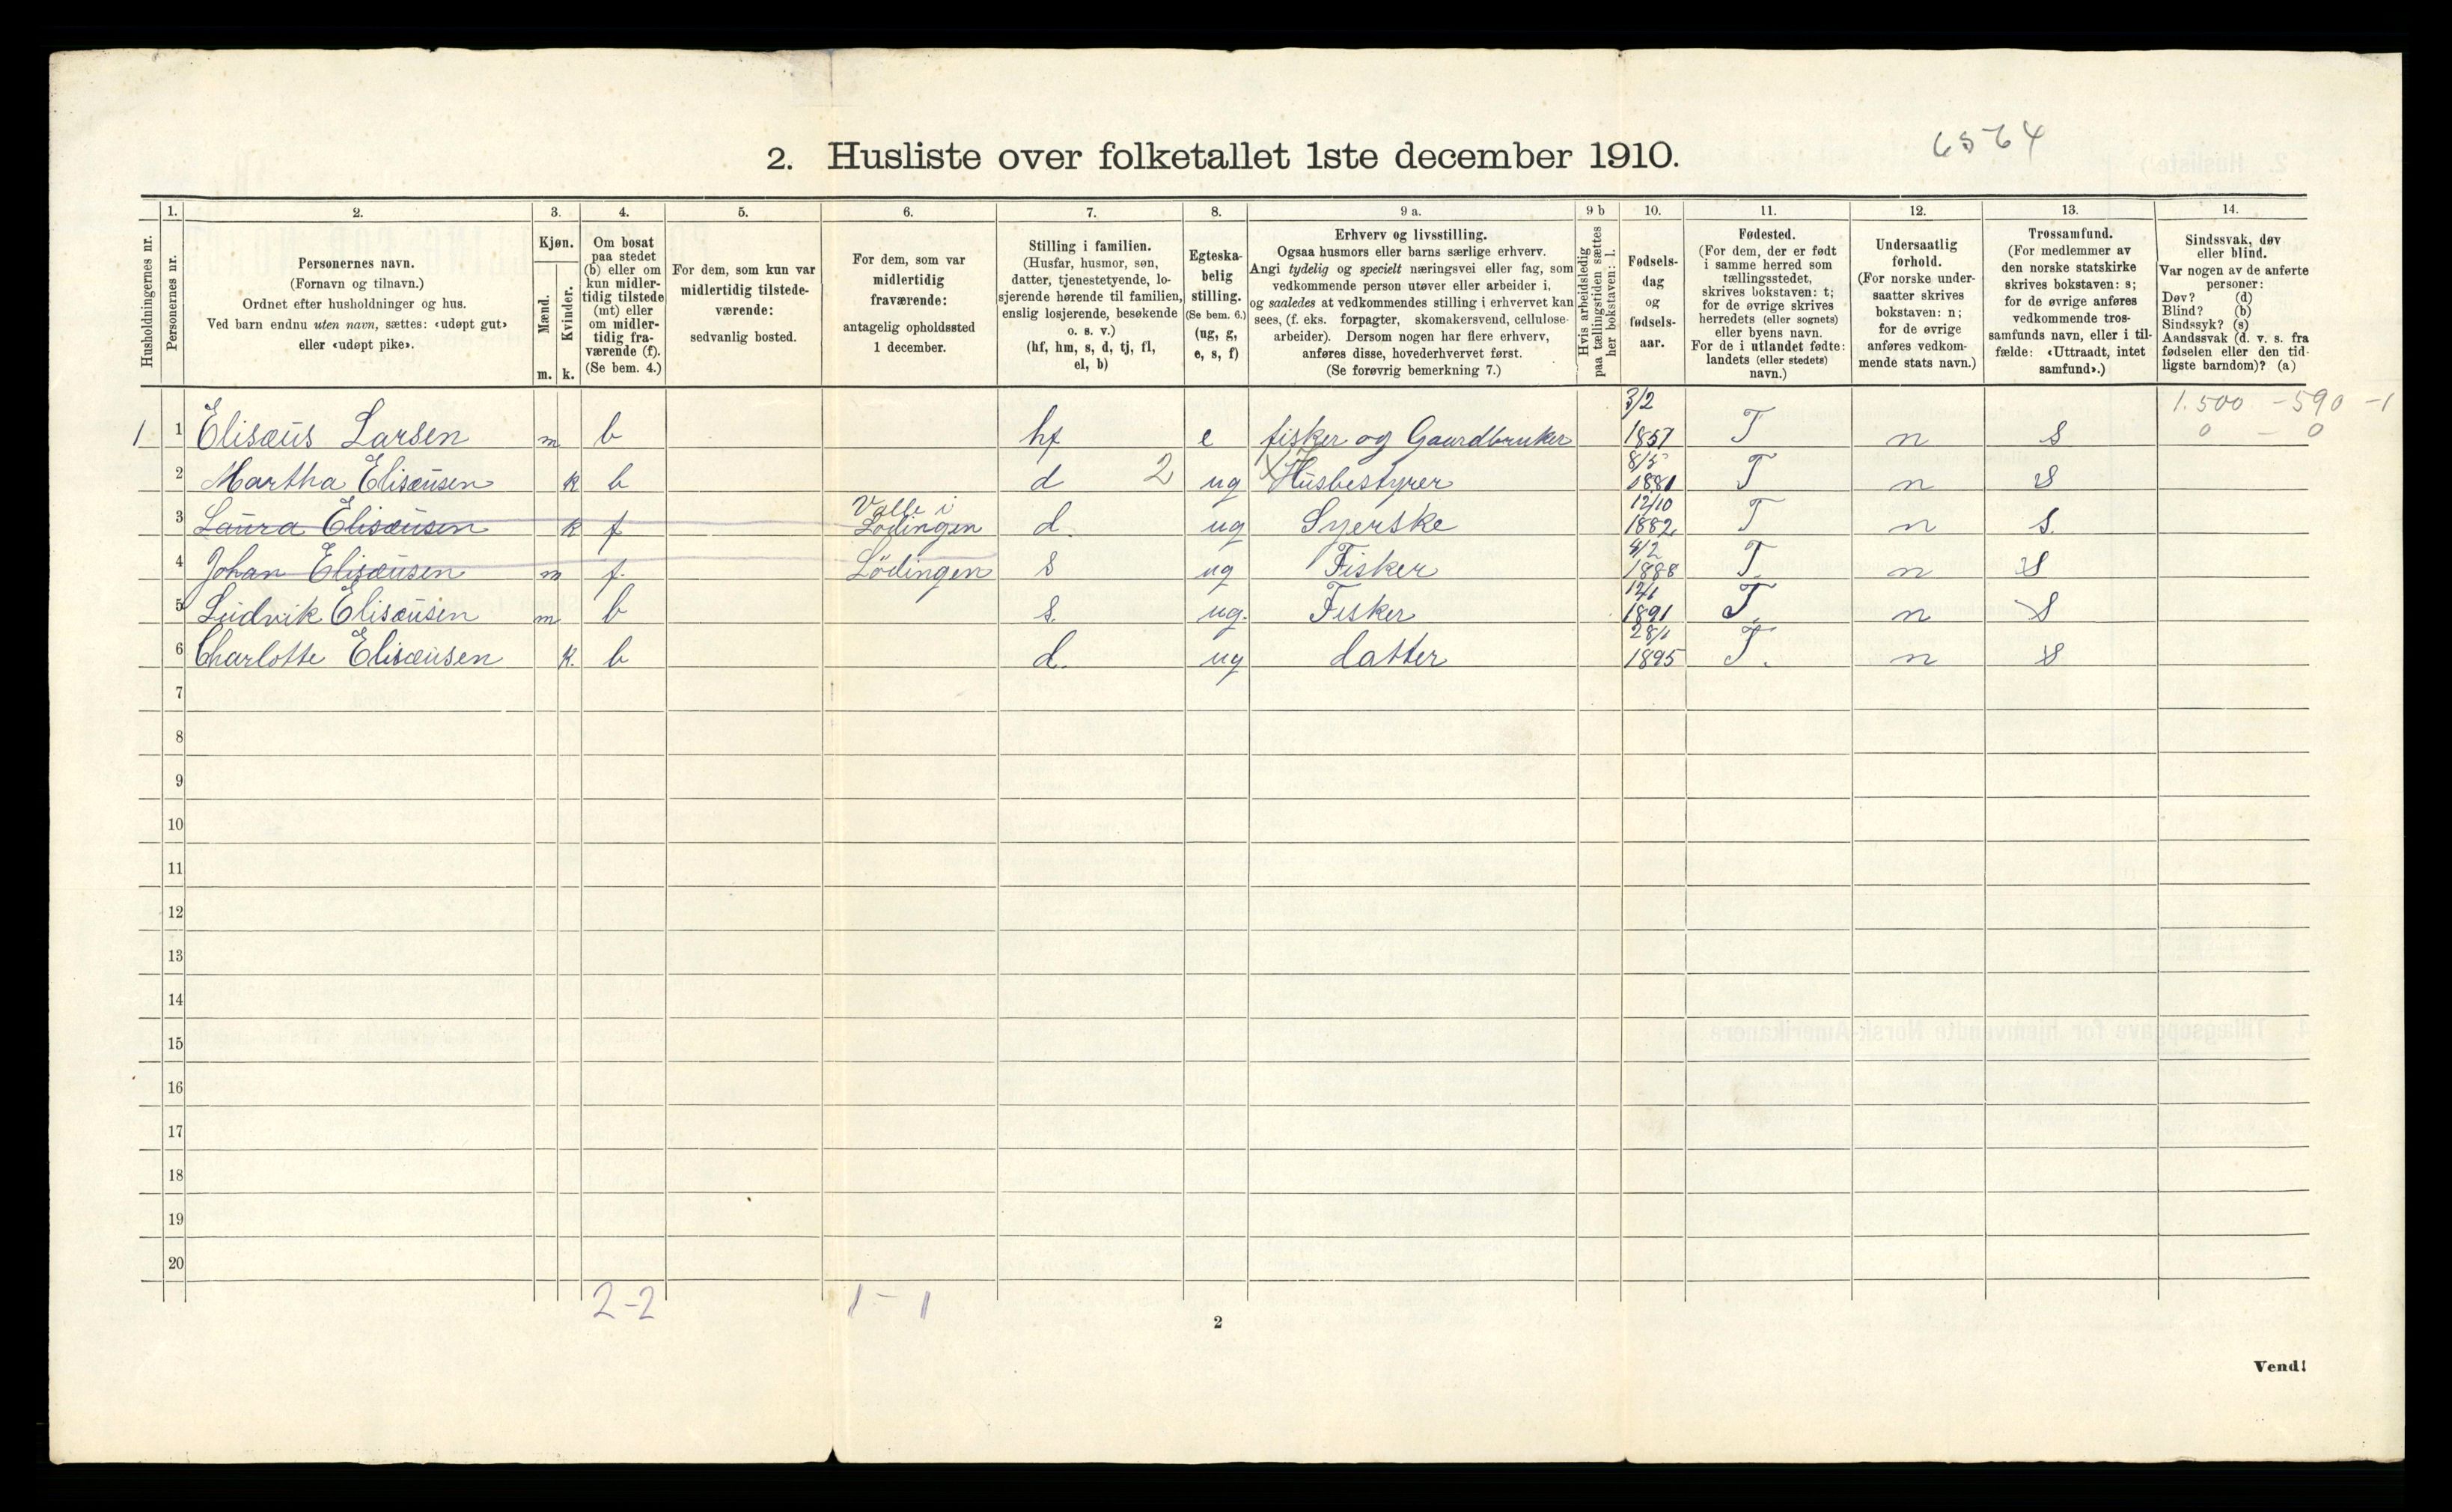 6564
2. Husliste over folketallet 1ste december 1910.
Husholdningernes nr.
1.
Personernes nr.
2.
Personernes navn.
(Fornavn og tilnavn.)
Ordnet efter husholdninger og hus.
Ved barn endnu uten navn, sættes: «udøpt gut»
eller «udøpt pike».
3.
Kjøn.
Mænd.
Kvinder.
m. k.
4.
Om bosat
paa stedet
(b) eller om
kun midler-
tidig tilstede
(mt) eller
om midler-
tidig fra-
værende (f).
(Se bem. 4.)
5.
For dem, som kun var
midlertidig tilstede-
værende:
sedvanlig bosted.
6.
For dem, som var
midlertidig
fraværende:
antagelig opholdssted
1 december.
7.
Stilling i familien.
(Husfar, husmor, søn,
datter, tjenestetyende, lo-
sjerende hørende til familien,
enslig losjerende, besøkende
o. s. v.)
(hf, hm, s, d, tj, fl,
el, b)
8.
Egteska-
belig
stilling.
(Se bem. 6.)
(ug, g,
e, s, f)
9 a.
Erhverv og livsstilling.
Ogsaa husmors eller barns særlige erhverv.
Angi tydelig og specielt næringsvei eller fag, som
vedkommende person utøver eller arbeider i,
og saaledes at vedkommendes stilling i erhvervet kan
sees, (f. eks. forpagter, skomakersvend, cellulose-
arbeider). Dersom nogen har flere erhverv,
anføres disse, hovederhvervet først.
(Se forøvrig bemerkning 7.)
9 b
Hvis arbeidsledig
paa tællingstiden sættes
her bokstaven: l.
10.
Fødsels-
dag
og
fødsels-
aar.
11.
Fødested.
(For dem, der er født
i samme herred som
tællingsstedet,
skrives bokstaven: t;
for de øvrige skrives
herredets (eller sognets)
eller byens navn.
For de i utlandet fødte:
landets (eller stedets)
navn.)
12.
Undersaatlig
forhold.
(For norske under-
saatter skrives
bokstaven: n;
for de øvrige
anføres vedkom-
mende stats navn.)
13.
Trossamfund.
(For medlemmer av
den norske statskirke
skrives bokstaven: s;
for de øvrige anføres
vedkommende tros-
samfunds navn, eller i til-
fælde: «Uttraadt, intet
samfund».)
14.
Sindssvak, døv
eller blind.
Var nogen av de anførte
personer:
Døv? (d)
Blind? (b)
Sindssyk? (s)
Aandssvak (d. v. s. fra
fødselen eller den tid-
ligste barndom)? (a)
1 1 Elisæus Larsen m b hf e fisker og Gaardbruker 3/2 1857 T n s 1.500 - 590 - 1
0 - 0
2 Martha Elisæusen k b d 2 ug Husbestyrer 8/5 1881 T n S
3 Laura Elisæusen k f Valle i Lødingen d. ug Syerske 12/10 1882 T n S.
4 Johan Elisæusen m f. Lödingen s ug Fisker 4/2 1888 T. n S
5 Ludvik Elisæusen m b s. ug. Fisker 12/1 1891 T. n S
6 Charlotte Elisæusen k. b d. ug datter 28/1 1895 T. n S
7
8
9
10
11
12
13
14
15
16
17
18
19
20
2-2 1 - 1
2
Vend!